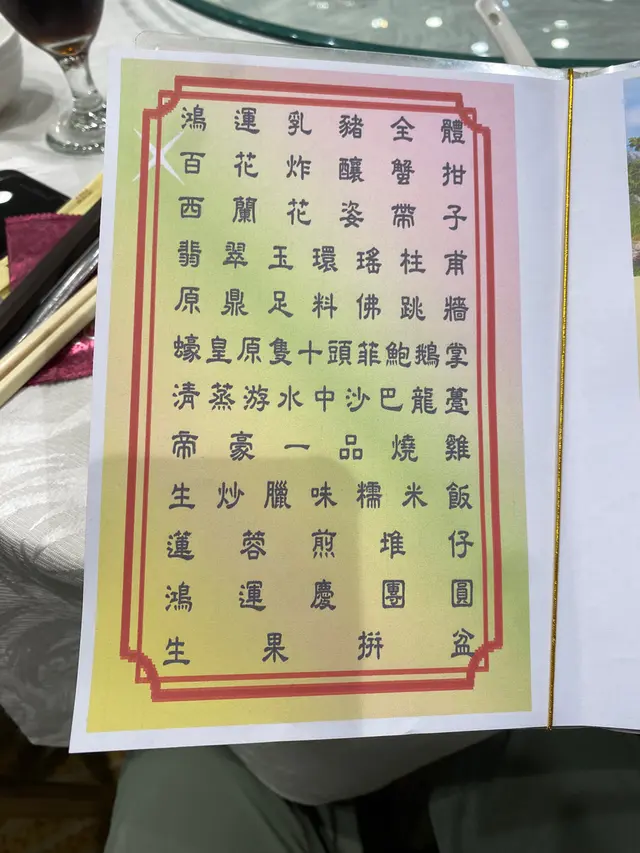 鴻運乳豬全體
百花炸釀蟹拑
西蘭花姿帶子
翡翠玉環瑤柱甫
原鼎足料佛跳牆
蠔皇原隻十頭菲鮑鵝掌
清蒸游水中沙巴龍躉
帝豪一品燒雞
生炒臘味糯米飯
蓮蓉煎堆仔
鴻運慶團圓
生果拼盆